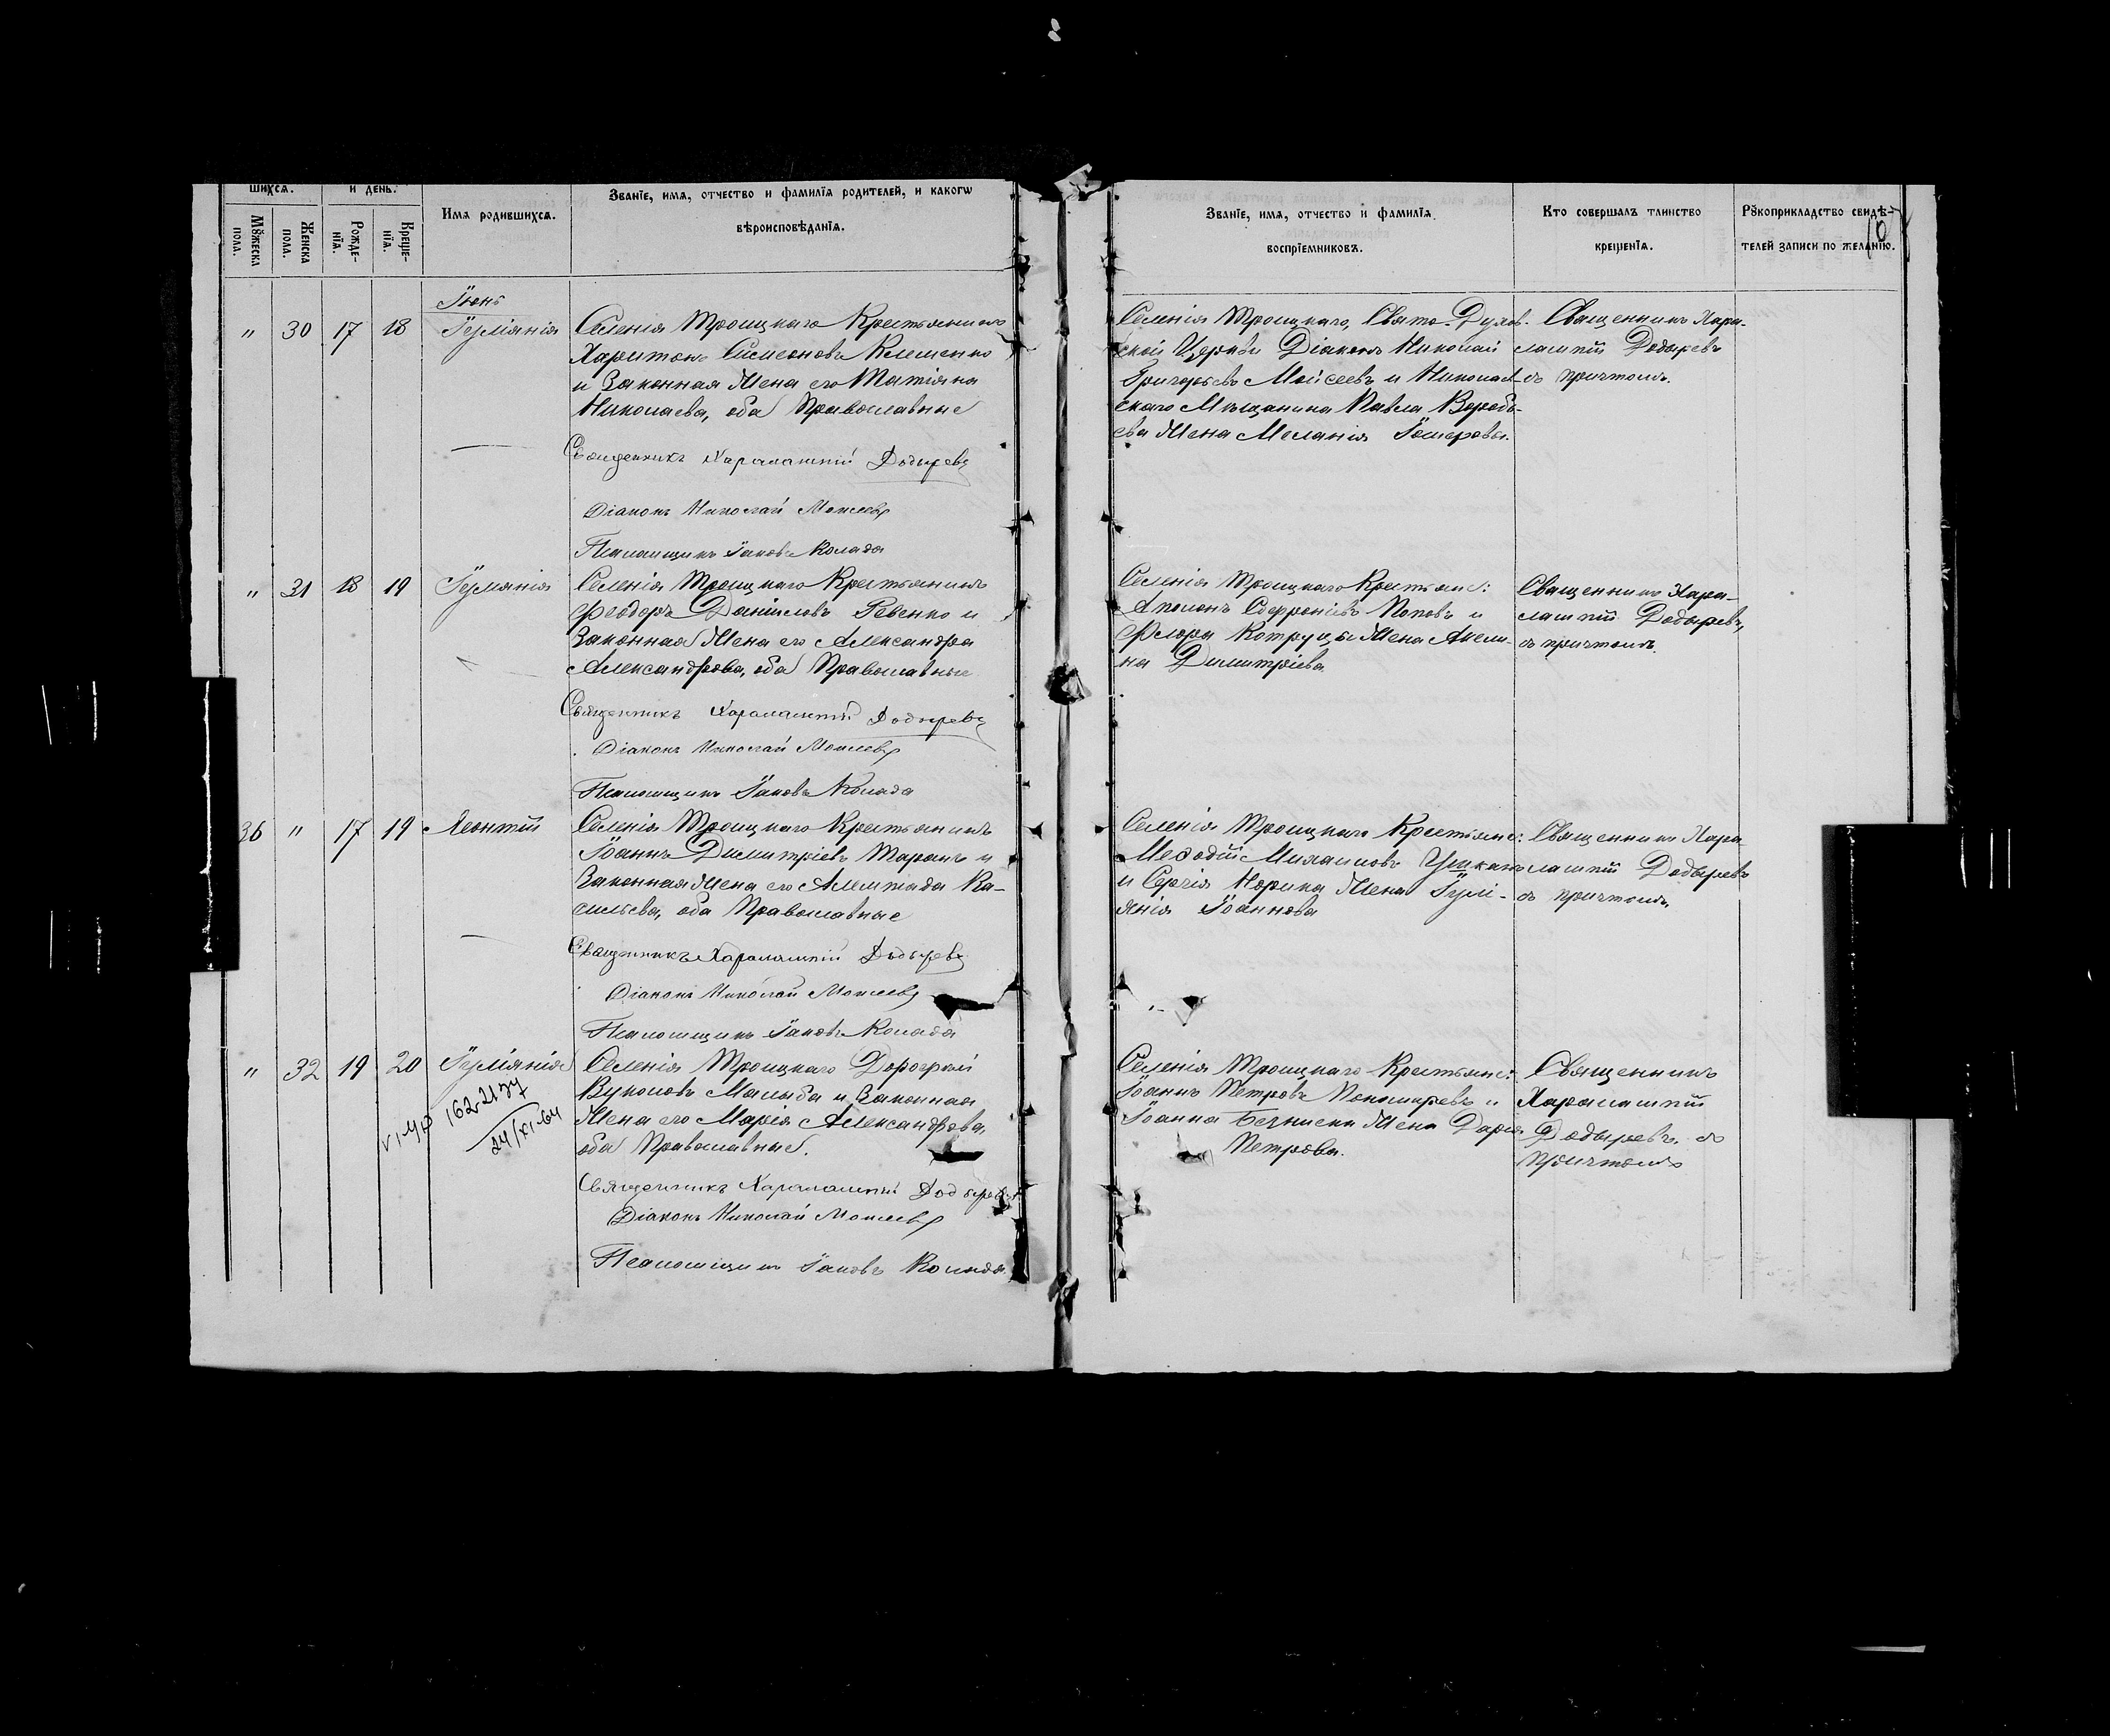 шихся.
и день.
Мꙋжеска пола.
Женска пола.
Рожде-нїя.
Креще-нїя.
Имя родившихся.
Званїе, имя, отчество и фамилїя родителей, и какогѡ
вѣроисповѣданїя.
Званїе, имя, отчество и фамилїя
воспрїемниковъ.
Кто совершалъ таинство
крещенїя.
Рꙋкоприкладство свидѣ-
телей записи по желанїю.
Іюнь
" 30 17 18 Іуліанія
Селенія Троицкаго Крестьянинъ
Харитонъ Симеоновъ Клименко
и Законная Жена его Татіана
Николаева, оба Православные
Священникъ Харалампій Додыревъ
Діаконъ Николай Моисеевъ
Псаломщикъ Іаковъ Колада
Селенія Троицкаго, Свято-Духов-
ской Церкви Діаконъ Николай
Григорьевъ Моисеевъ и Николаев-
скаго Мѣщанина Павла Воробь-
ева Жена Меланія
Священникъ Хара-
лампій Додыревъ
съ причтомъ.
" 31 18 19 Іуліанія
Селенія Троицкаго Крестьянинъ
Феодоръ Даніиловъ Ревенко и
Законная Жена его Александра
Александрова, оба Православные
Священникъ Харалампій Додыревъ
Діаконъ Николай Моисеевъ
Псаломщикъ Іаковъ Колада
Селенія Троицкаго Крестьяне:
Софроніевъ Поповъ и
Флора Котруцы Жена Акили-
на Димитріева
Священникъ Хара-
лампій Додыревъ,
съ причтомъ.
36 " 17 19 Леонтій
Селенія Троицкаго Крестьянинъ
Іоаннъ Димитріевъ Таранъ и
Законная Жена его Ва-
сильева, оба Православные
Священникъ Харалампій Додыревъ
Діаконъ Николай Моисеевъ
Псаломщикъ Іаковъ Колада
Селенія Троицкаго Крестьяне:
Меѳодій Михаиловъ
и Сергія Жена Іулі-
анія Іоаннова
Священникъ Хара
лампій Додыревъ
съ причтомъ.
" 32 19 20 Іуліанія
162-2137
24/XI-64
Селенія Троицкаго Дорофей
Вуколовъ и Законная
Жена его Марія Александрова,
оба Православные.
Священникъ Харалампій Додыревъ
Діаконъ Николай Моисеевъ
Псаломщикъ Іаковъ Колада
Селенія Троицкаго Крестьяне:
Іоаннъ Петровъ Пономаревъ и
Іоанна Жена Дарія
Петрова.
Священникъ
Харалампій
Додыревъ съ
причтомъ